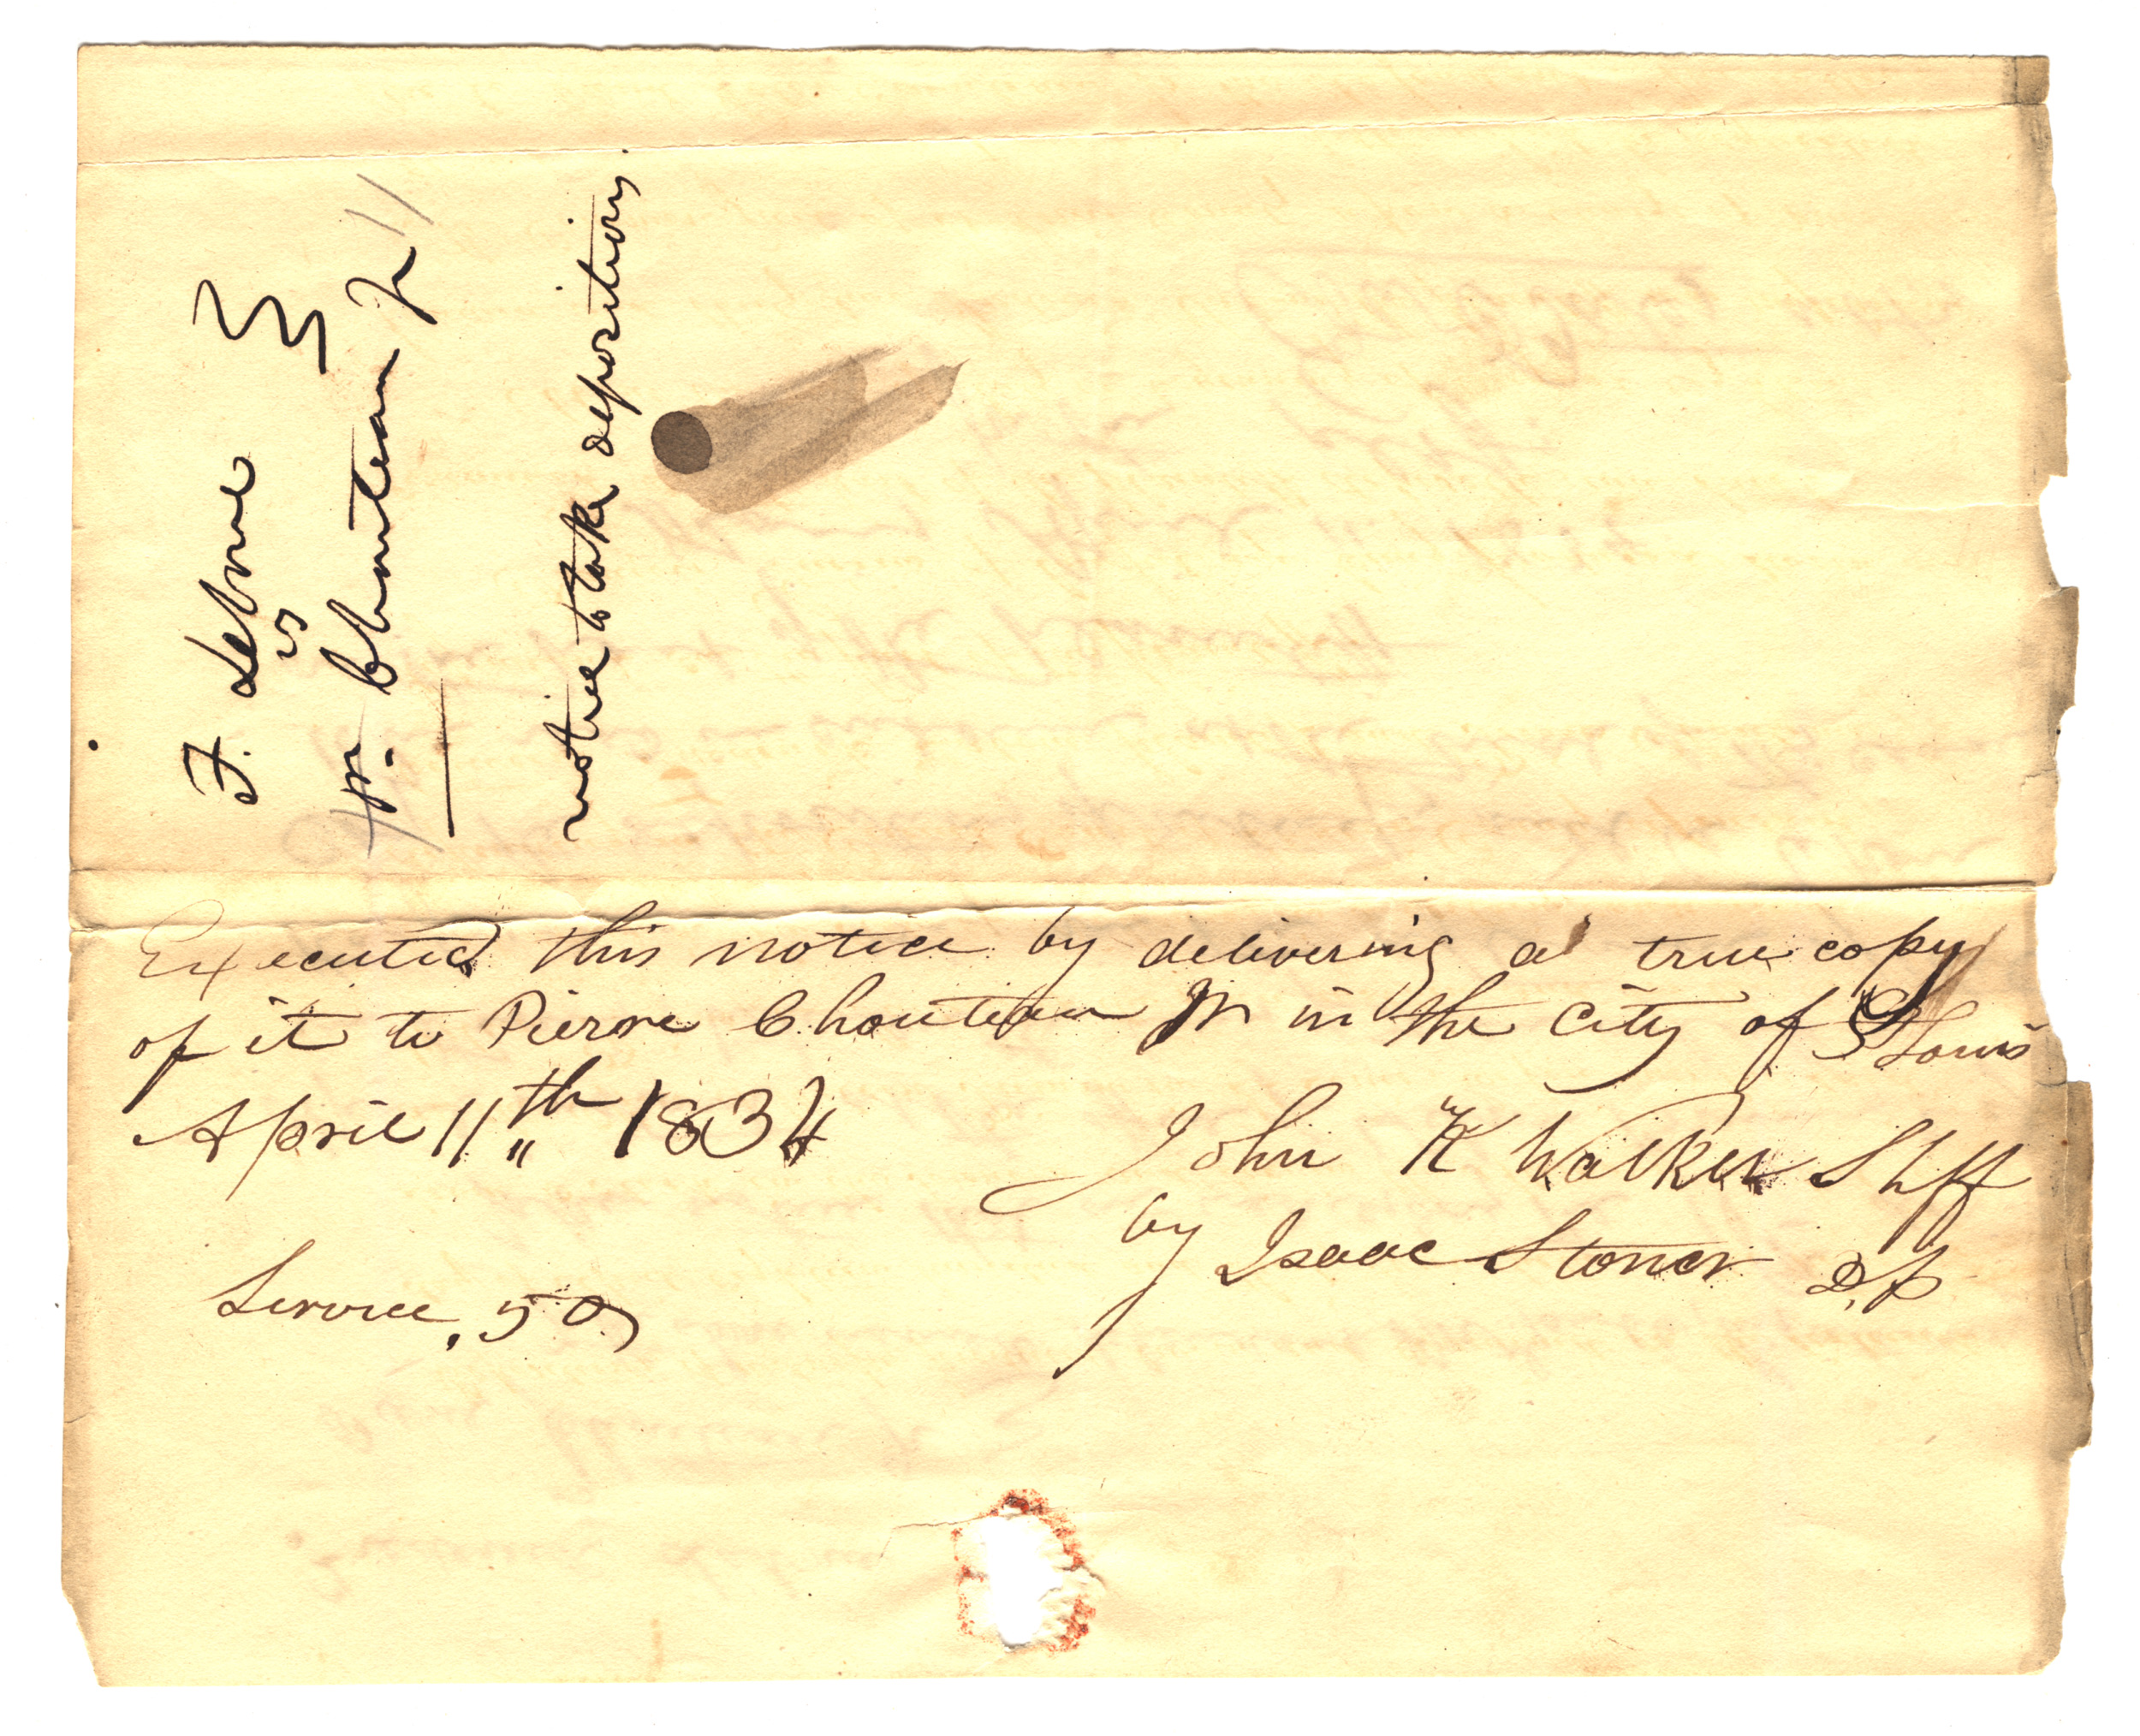 F. Lebrue
vs
Pr. Chouteau Jr
notice to take depositions
Executed this notice by delivering a true copy
of it to Pierre Chouteau Jr in the City of St Louis
April 11th 1834
John K Walker Shff
by Isaac Stoner D.S
Service .50